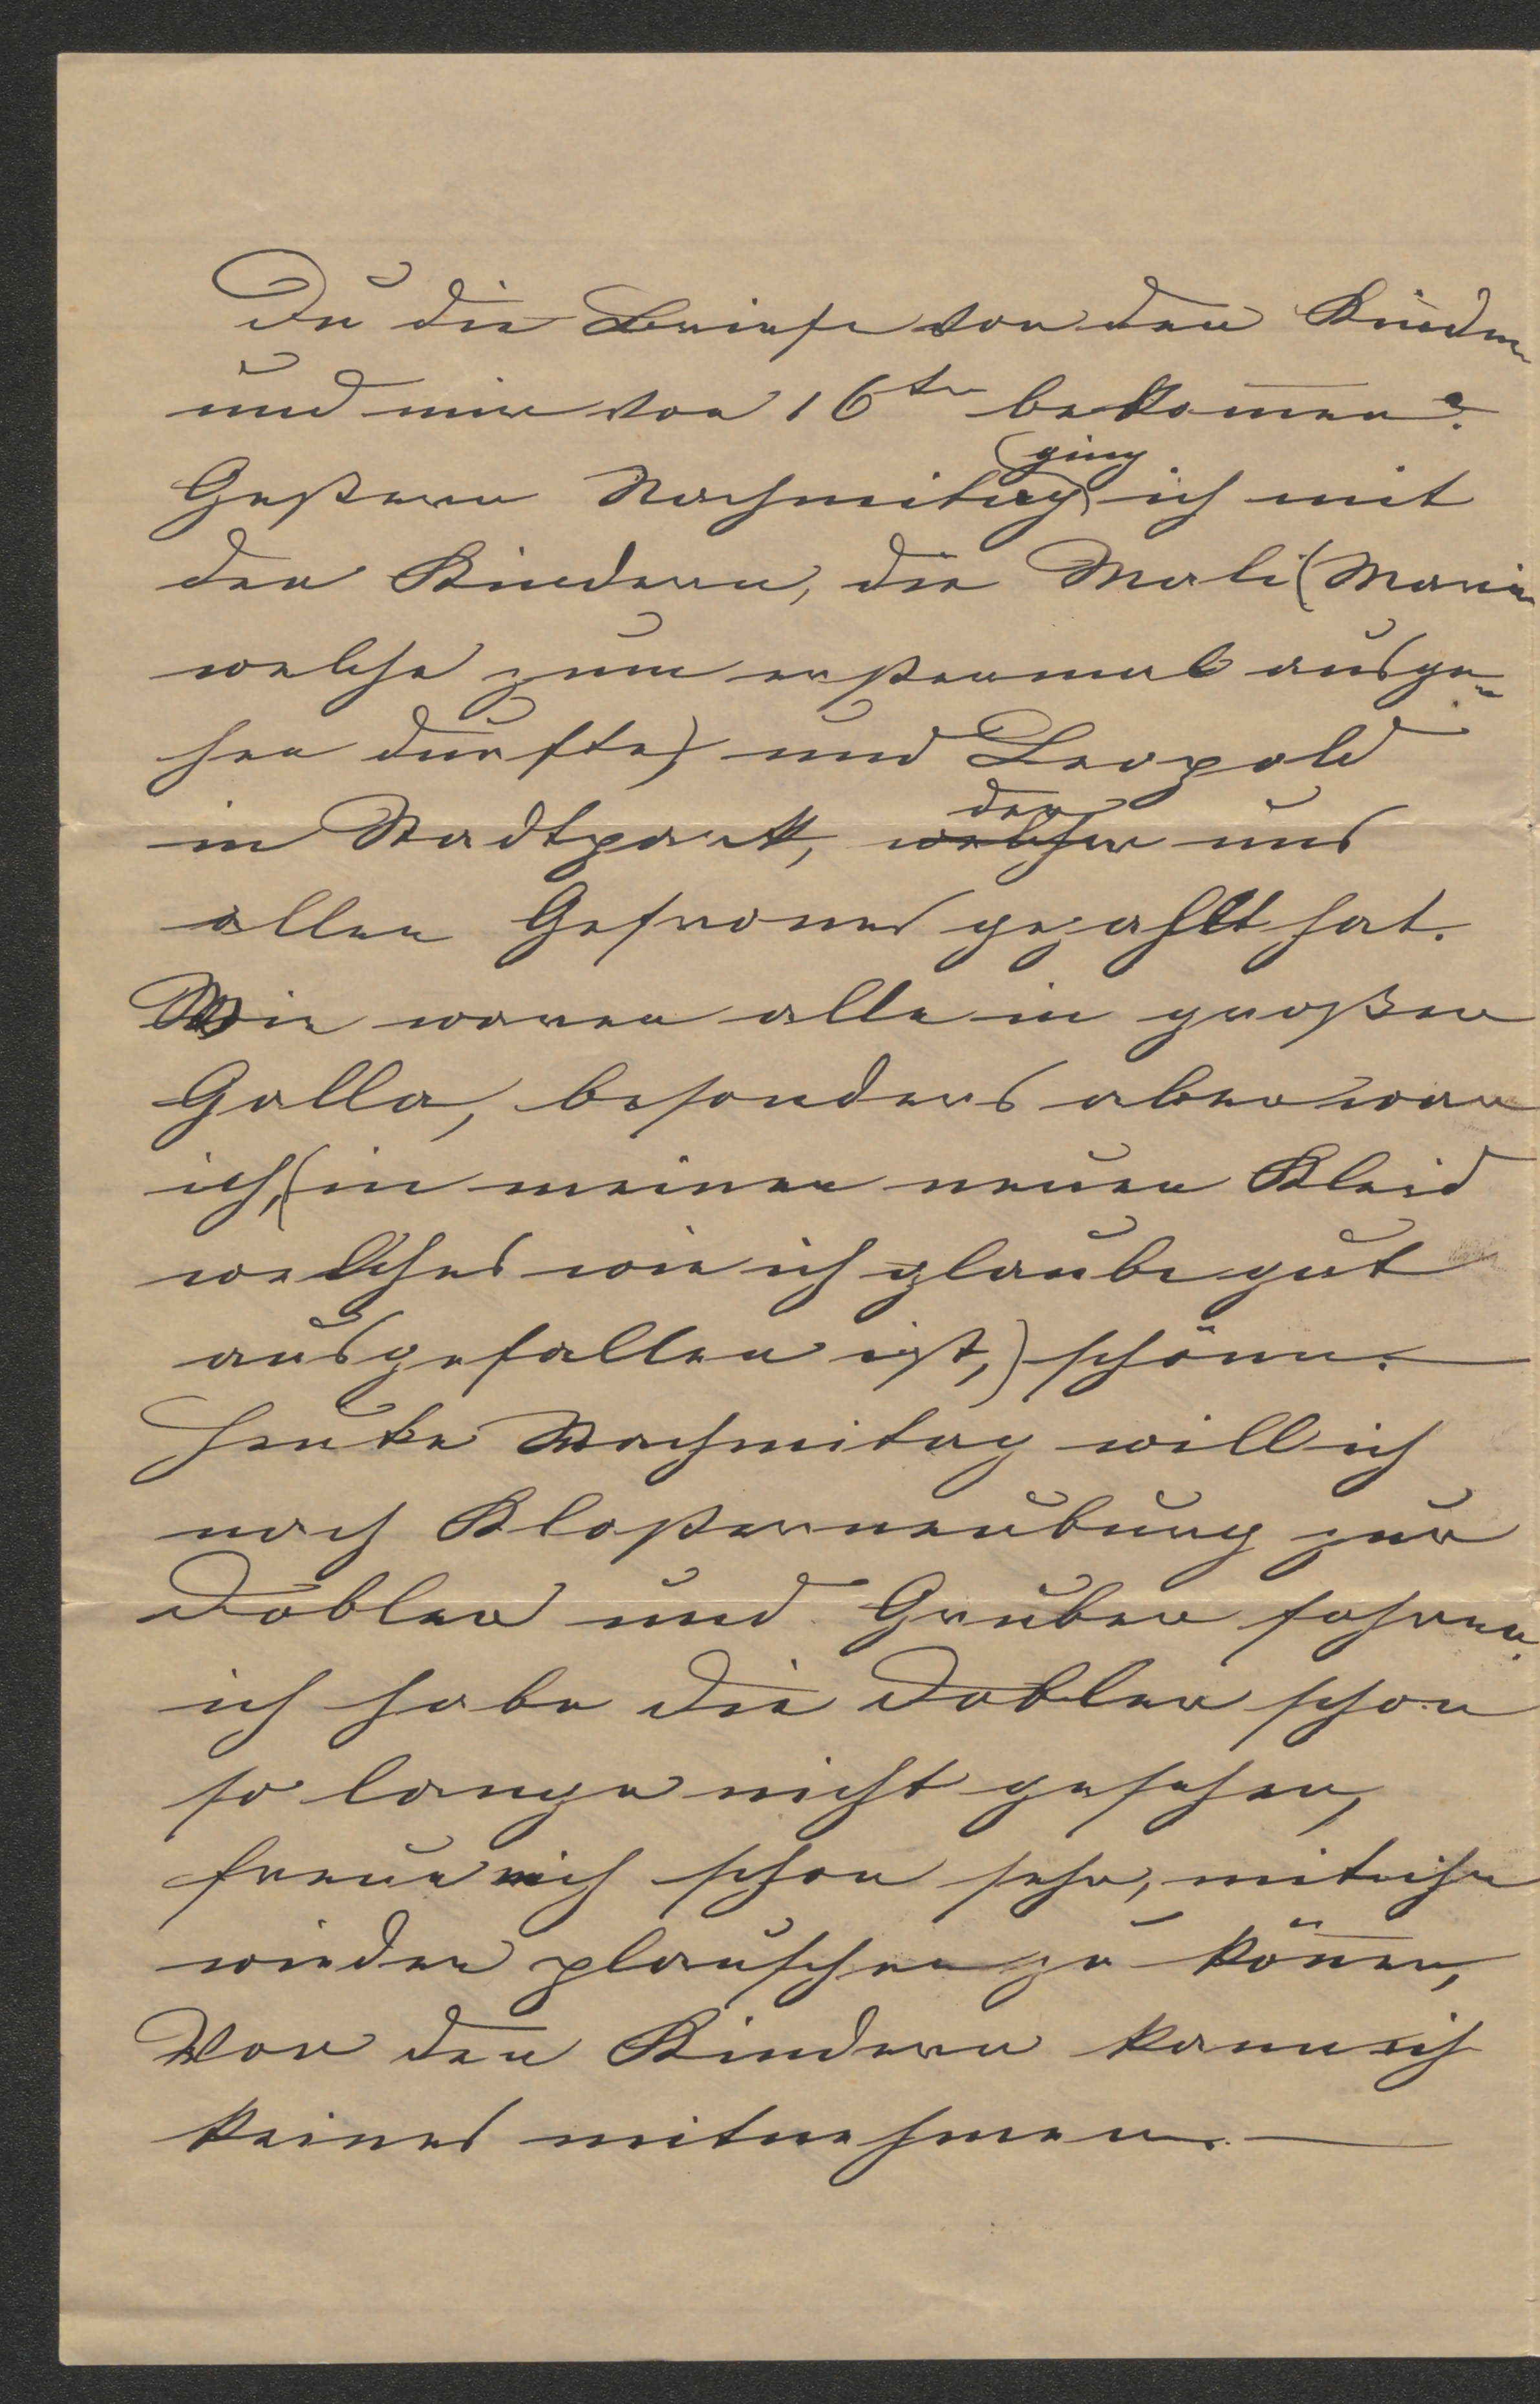 Du die Briefe von den Kindern
und mir von 16ten bekom̅en?
Gestern Nachmitag ging ich mit
den Kindern, die Mali (Marie
welche zum erstenmal ausge-
hen durfte) und Leopold
in Stadtpark, welcher der uns
allen Gefrornes gezahlt hat.
Wir waren alle in großer
Galla, besonders aber war
ich, (in meinen neuen Kleid
welches wie ich glaube gut
ausgefallen ist,) schön.
Heute Nachmitag will ich
nach Klosterneuburg zur
Dobler und Gruber fahren.
ich habe die Dobler schon
so lange nicht gesehen,
freue mich schon sehr, mit ihr
wieder plauschen zu kön̅en,
Von den Kindern kann ich
keines mitnehmen.